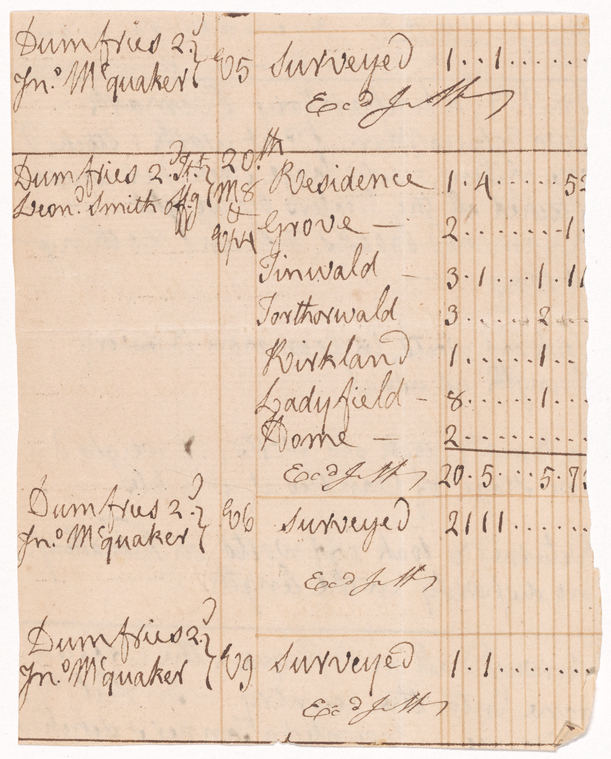 Dumfries 2.d
Jno. McQuaker
E5 surveyed 1..1.....
Exd
Dumfries 2.d st.t 20th
Leon.d Smith offg
M8
&
E/4
Residence 1.4.....5
Grove — 2.......1.
Tinwald — 3.1....1.11
Torthorwald 3.....2..
Kirkland 1.....1..
Ladyfield - 8.....1.
Home — 2.......
Exd 20.5...5.7
Dumfries 2.d
Jno. McQuaker
E6 surveyed 2111.....
Exd
Dumfries 2.d
Jno. McQuaker
E9 surveyed 1.1.....
Exd